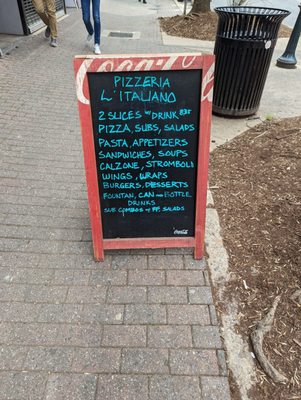 Coca-Cola
PIZZERIA
L'ITALIANO
2 SLICES W/ DRINK
PIZZA, SUBS, SALADS
PASTA, APPETIZERS
SANDWICHES, SOUPS
CALZONE, STROMBOLI
WINGS, WRAPS
BURGERS, DESSERTS
FOUNTAIN, CAN BOTTLE
DRINKS
SUB COMBOS FF SALADS
Coca-Cola